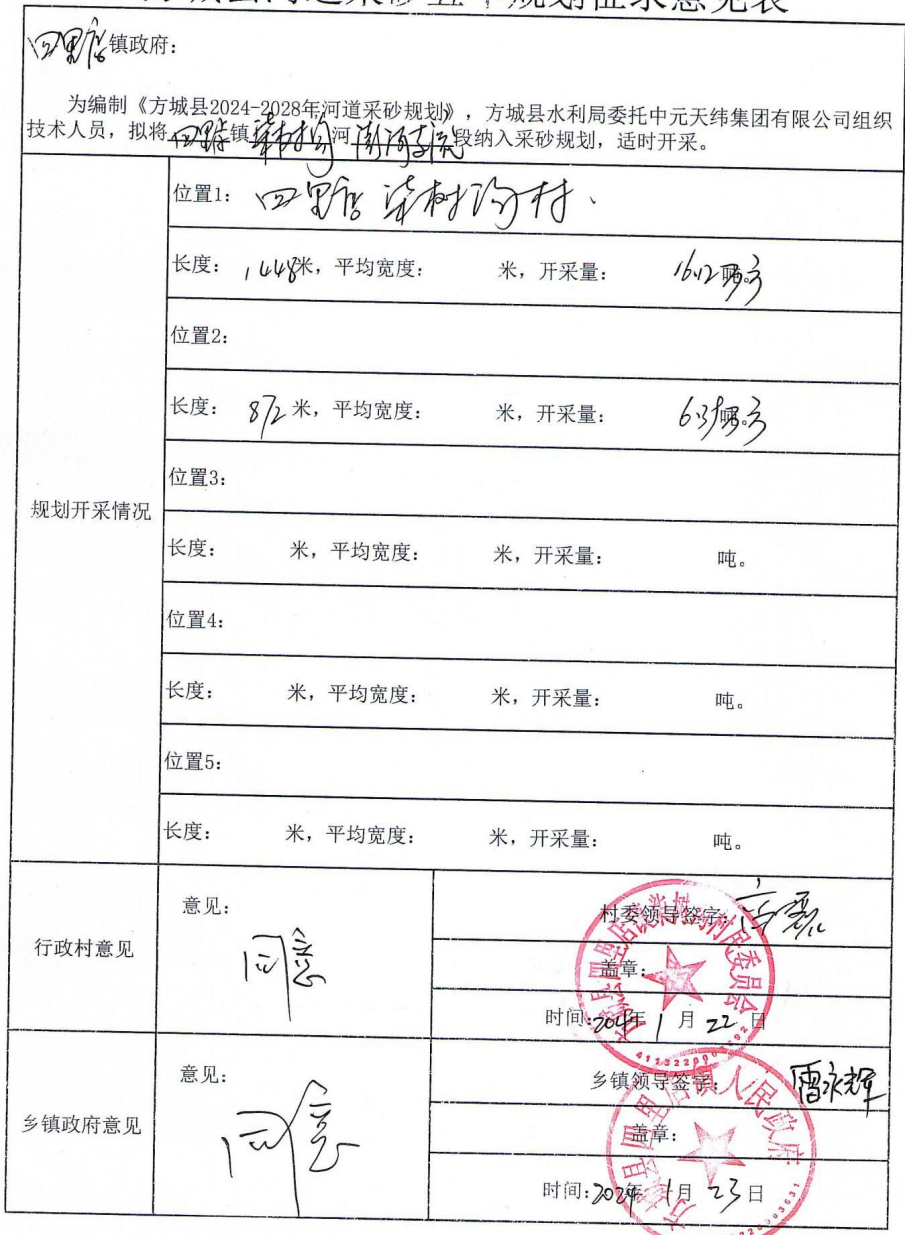 方城县河道采砂五年规划征求意见表
四里店镇政府：
为编制《方城县2024-2028年河道采砂规划》，方城县水利局委托中元天纬集团有限公司组织
技术人员，拟将四里店镇柒树沟河澎河支流段纳入采砂规划，适时开采。
规划开采情况
位置1：四里店柒树沟村.
长度：1448米，平均宽度： 米，开采量：16.12万方
位置2：
长度：872米，平均宽度： 米，开采量：6.3万方
位置3：
长度： 米，平均宽度： 米，开采量： 吨。
位置4：
长度： 米，平均宽度： 米，开采量： 吨。
位置5：
长度： 米，平均宽度： 米，开采量： 吨。
行政村意见
意见：
同意
村委领导签字：
盖章：
时间：2024年1月22日
方城县四里店镇柒树沟村民委员会
乡镇政府意见
意见：
同意
乡镇领导签字：雷永辉
盖章：
时间：2024年1月23日
方城县四里店镇人民政府